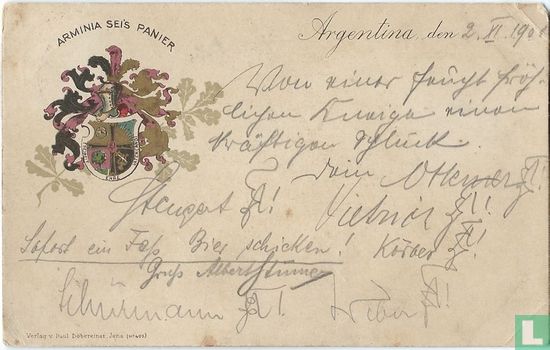 ARMINIA SEI'S PANIER
Argentina, den 2. XI. 1901
Von einer feucht fröh-
lichen Kneipe einen
kräftigen Schluck.
Dein
Sofort ein Faß Bier schicken! Körber
Gruß Albert
Schürmann
Weber
Verlag v. Paul Döbereiner, Jena